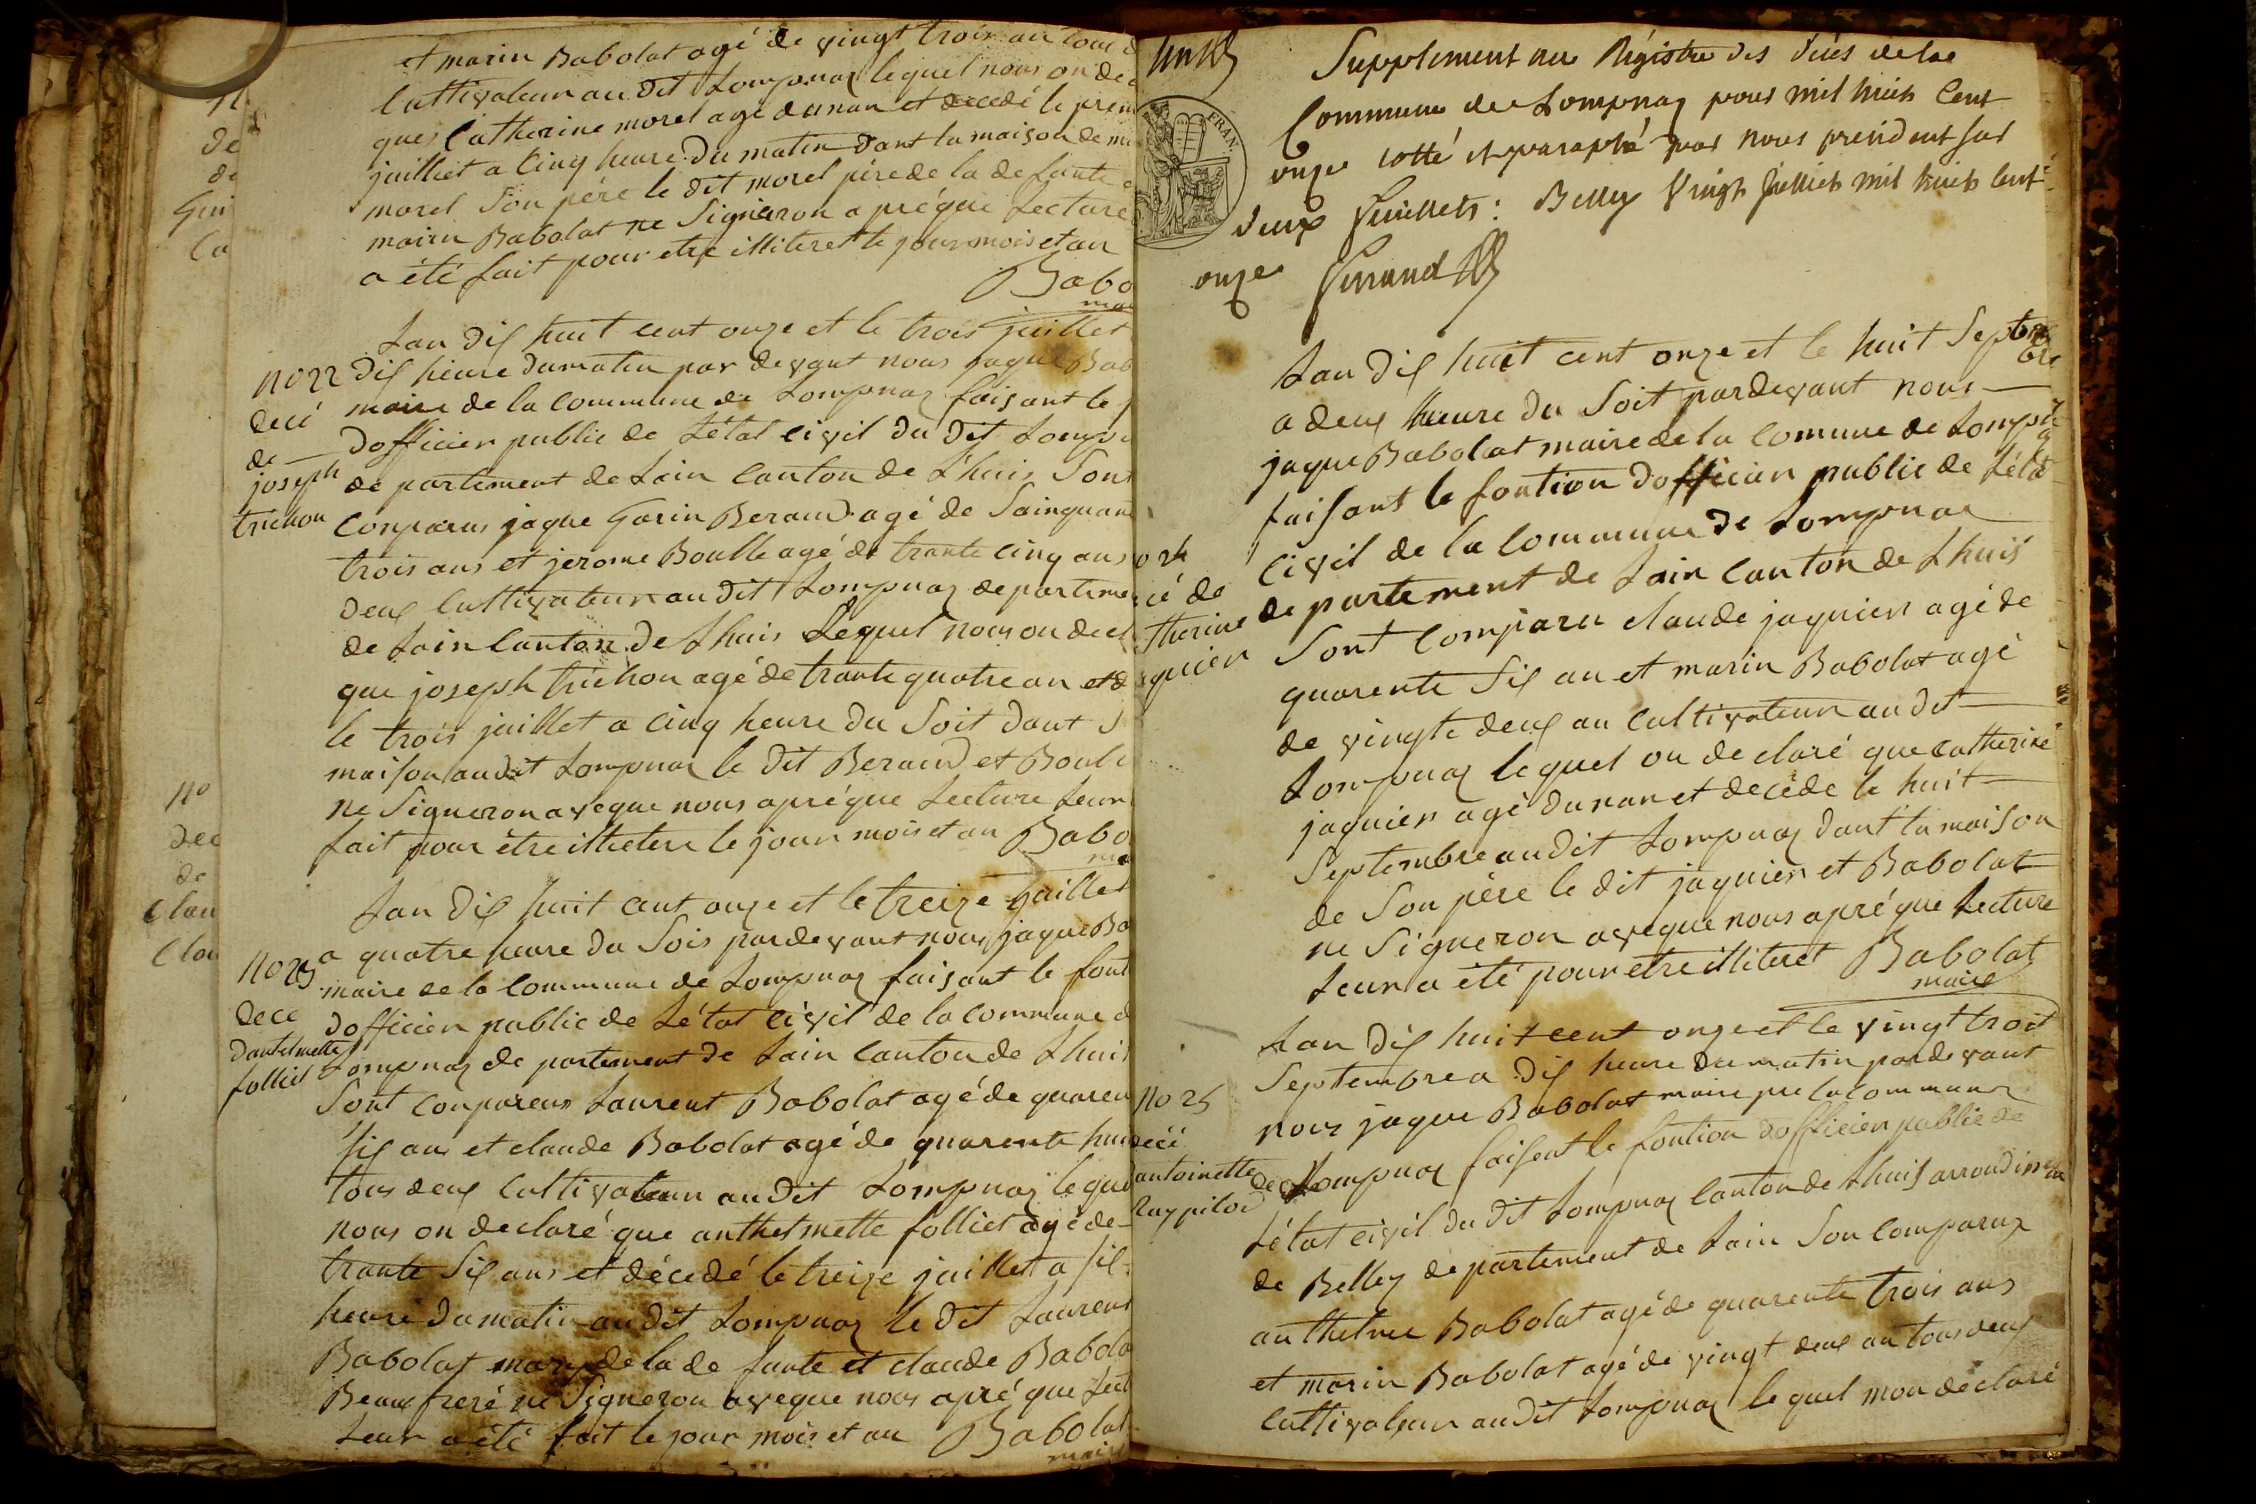 et marin Babolat agé de vingt trois an tous d
Cultivateur au dit Lompnaz lequel nous on de
que Catherine morel agé dunan et decedé le prem
juilliet a Cinq heure du matin dant la maison de
morel Son pére le dit morel pére de la defunte
marin Babolat ne Signeron apréque Lecture
a été fait pour etre illiteret le jour mois et an
Babo
Lan dix huit cent onze et le trois juillet
dix heure dumatin par devant nous jaque Bab
maire de la commune de Lompnaz faisant le
dofficier public de Létat civil du dit Lomp
de partement de Lain Canton de Lhuis Sont
Conparus jaque Garin Beraud agé de Sainquan
trois ans et jerome Boulle agé de trante cinq ans
deux Cultivateur au dit Lompnaz departeme
de Lain Canton de Lhuis Lequel nous on decl
que joseph trichon agé de trante quatre an et d
le trois juillet a cinq heure du Soit dant S
maison audit Lompnaz le dit Beraud et Boul
ne Signeron aveque nous apréque Lecture Leur
fait pour étre illeteré le jour mois et an Babo
ma
no 22
decé
de
joseph
trichon
Lan dix huit cent onze et le treize juillet
a quatre heure du Soir pardevant nous jaque Ba
maire de la Commune de Lompnaz faisant le font
dofficier public de Létat civil de la commune d
Lompnaz de partement de Lain Canton de Lhuis
Sont Conpareus Laurent Babolat agé de quaren
Six ans et claude Babolat agé de quarente hui
tous deux Cultivateur au dit Lompnaz le quel
nous on declaré que anthelmette folliet agé de
trante Six ans et décedé le treize juillet a Six
heure dumatin au dit Lompnaz le dit Laurent
Babolat mary de la de funte et claude Babola
Beaux freré ne Signeron aveque nous apré que Lect
Leur a été fait le jour mois et an Babolat
maire
no 23
dece
dantelmette
folliet
Supplement au Régistre des décés de la
Commune de Lompnaz pour mil huit Cent
onze cotté et paraphé par nous president sur
deux feuillets : Belley Vingt Juilliet mil huit Cent
onze
Lan dix huit cent onze et le huit Septem
bre
a deux heure du Soit pardevant nous
jaque Babolat maire de la Comune de Lompn
faisant le fontion dofficier public de Léta
civil de la Commune de Lompnaz
de partement de Lain Canton de Lhuis
Sont Comparu claude jaquier agé de
quarente Six an et marin Babolat agé
de vingte deux an Cultivateur au dit
Lompnaz lequel on de claré que catheriné
jaquier agé dunan et decéde le huit
Septembre audit Lompnaz dant la maison
de Son père le dit jaquier et Babolat
ne Signeron aveque nous apré que Lecture
Leur a été pour etre illiteret Babolat
maire
o 24
cé de
therine
quier
Lan dix huit cent onze et le vingt troit
Septembre a dix heure du matin pardevant
nous jaque Babolat maire de la commune
de Lompnaz faisent le fontion dofficier public de
Létat civil du dit Lompnaz Canton de Lhuis arrondissem
de Belley de partement de Lain Son Comparux
anthelme Babolat agé de quarente trois ans
et marin Babolat agé de vingt deux an tous deux
Cultivateur au dit Lompnaz le quel mon déclaré
no 25
decé
antoinette
FRAN
No
dec
de
Clau